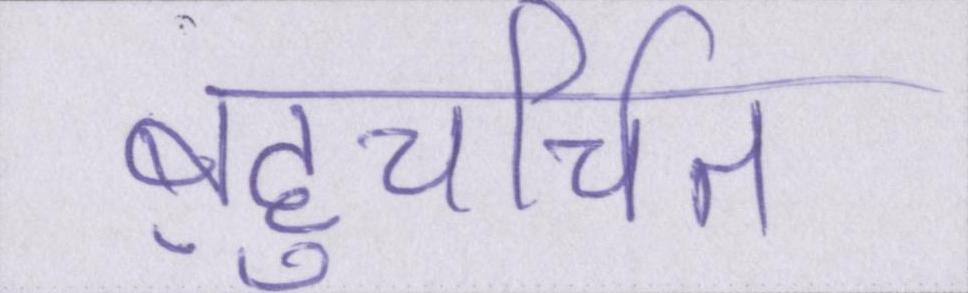 बहुचर्चित